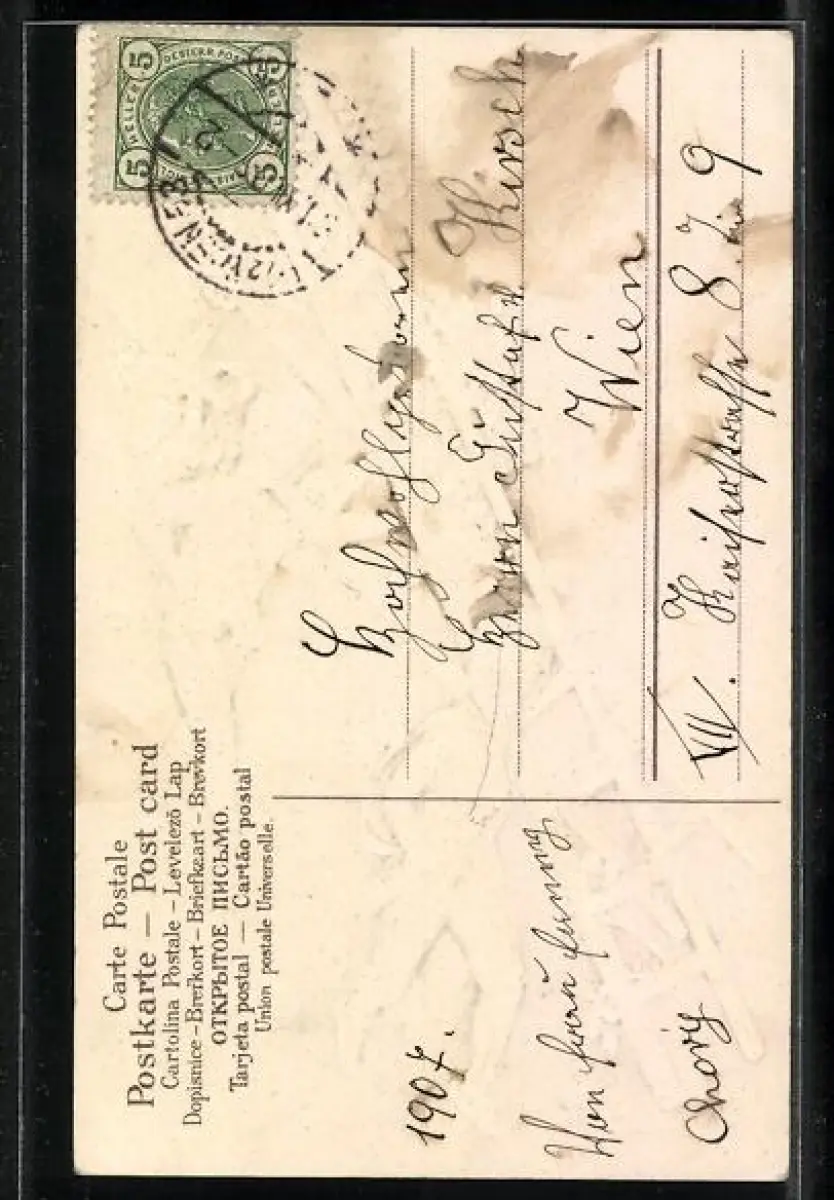 Carte Postale
Postkarte — Post card
Cartolina Postale – Levelező Lap
Dopisnice – Brefkort – Briefkaart – Brevkort
ОТКРЫТОЕ ПИСЬМО.
Tarjeta postal — Cartão postal
Union postale Universelle.
5 5
OESTERR. POST
HELLER
5 5
1907.
Von
Hochwohlgeboren
Herrn Gustav Kirsch
Wien
VII. Kaiserstrasse 8 9